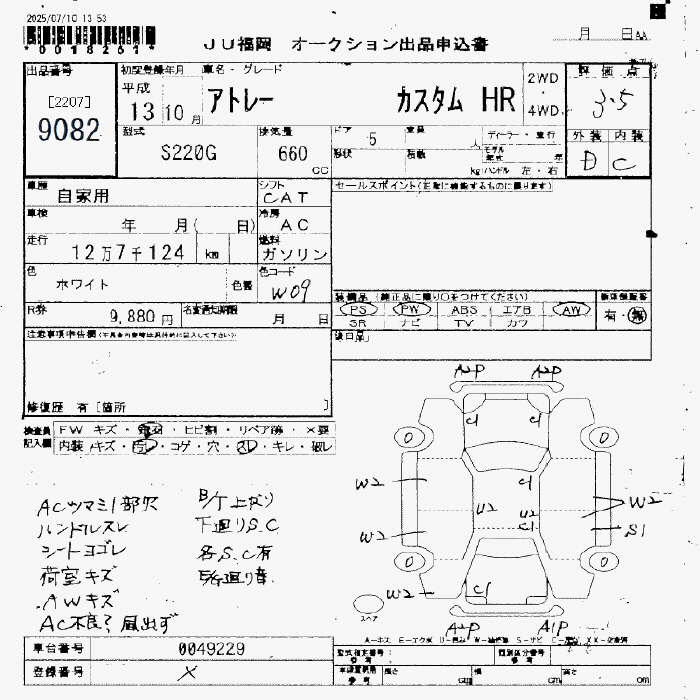 2025/07/10 13 53
*0018261*
JU福岡 オークション出品申込書
月 日
出品番号
[2207]
9082
初度登録年月
平成
13 10 月
車名・グレード
アトレー カスタム HR
2WD
・
4WD
評価点
3.5
外装 内装
D C
型式
S220G
排気量
660
CC
ドア
5
形状
積載
kg
ハンドル 左・右
車歴
自家用
シフト
CAT
セールスポイント
車検
年 月( 日)
冷房
AC
走行
12万7千124 km
燃料
ガソリン
色
ホワイト
色替
色コード
W09
R券
9,880円
月 日
装備品 (純正品に限り○をつけてください)
PS PW ABS エアB AW
SR ナビ TV カワ
有・無
注意事項申告欄
後日品
修復歴 有 [箇所 ]
検査員
記入欄
FW キズ・ ・ヒビ割・リペア跡・×要
内装 キズ・ ・コゲ・穴・ ・キレ・破レ
ACツマミ1部欠
ハンドルスレ
シートヨゴレ
荷室キズ
AWキズ
AC不良? 風出ず
下廻りS.C
各S.C有
A2P A2P
C1 C1
W2 U2 C1 U2 C1 W2
W2 S1
W2 C1
A2P A1P
スペア
車台番号
0049229
登録番号
型式指定番号
類別区分番号
長さ cm 幅 cm 高さ cm